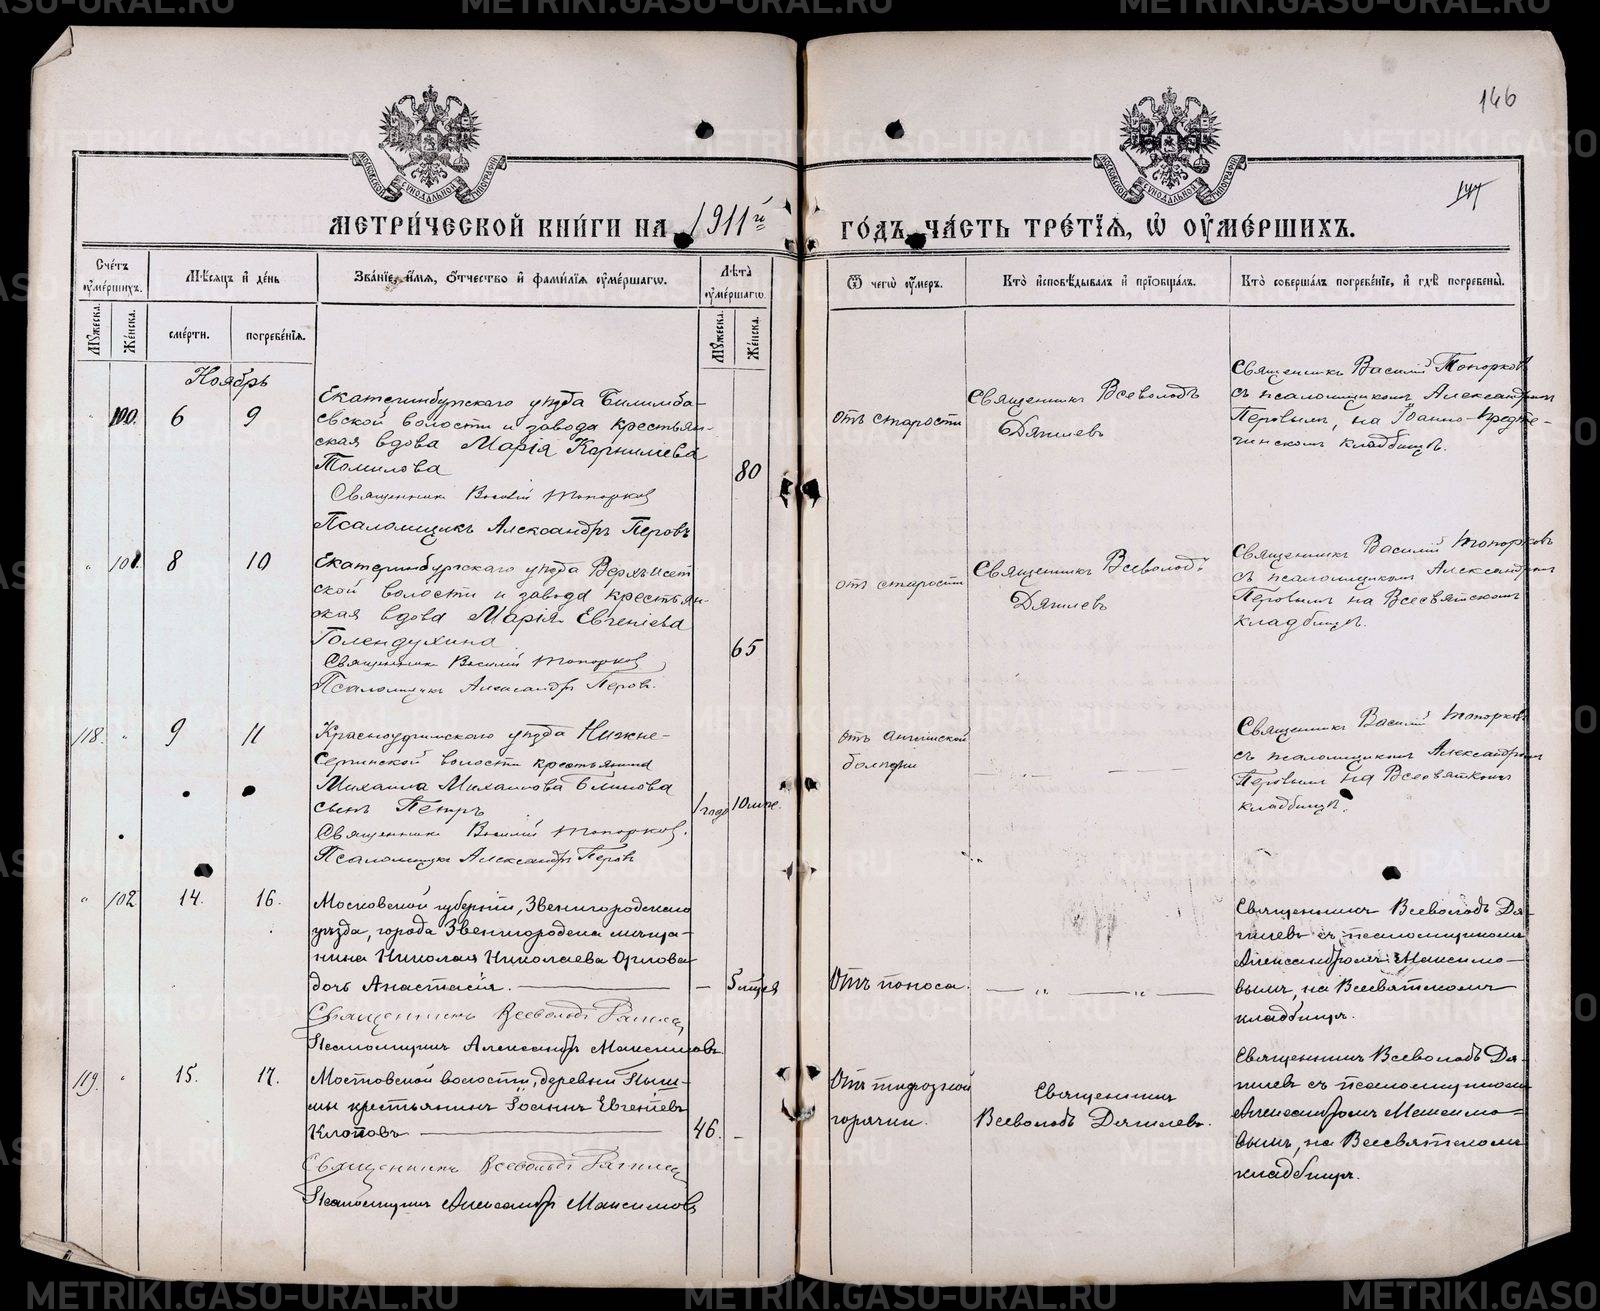 METRIKI.GASO-URAL.RU
146
147
МОСКОВСКОЙ СѴНОДАЛЬНОЙ ТИПОГРАФІИ
МОСКОВСКОЙ СѴНОДАЛЬНОЙ ТИПОГРАФІИ
МЕТРИ́ЧЕСКОЙ КНИ́ГИ НА 1911й ГО́ДЪ ЧА́СТЬ ТРЕ́ТІѦ, Ѡ҆ ОУ҆МЕ́РШИХЪ.
Сче́тъ оу҆ме́ршихъ.
Мꙋ́жеска.
Же́нска.
Мѣ́сѧцъ и҆ де́нь
сме́рти.
погребе́нїѧ.
Зва́нїе, и҆́мѧ, ѻ҆́тчество и҆ фами́лїѧ оу҆ме́ршагѡ.
Лѣ́та оу҆ме́ршагѡ.
Мꙋ́жеска.
Же́нска.
Ѿ чегѡ̀ оу҆́меръ.
Кто̀ и҆сповѣ́дывалъ и҆ прїѡбща́лъ.
Кто̀ соверша́лъ погребе́нїе, и҆ гдѣ̀ погребены̀.
Ноябрь
" 100. 6 9
Екатеринбургскаго уѣзда Билимба-
евской волости и завода крестьян-
ская вдова Марія Корнилиева
Томилова
80
Священникъ Василій Топорковъ
Псаломщикъ Александръ Перовъ
отъ старости
Священникъ Всеволодъ
Дягилевъ
Священникъ Василій Топорковъ
съ псаломщикомъ Александромъ
Перовымъ, на Іоанно-Предте-
чинскомъ кладбищѣ.
" 101. 8 10
Екатеринбургскаго уѣзда Верхъ-Исет
ской волости и завода крестьян-
ская вдова Марія Евгеніева
Голендухина
65
Священникъ Василій Топорковъ
Псаломщикъ Александръ Перовъ.
отъ старости
Священникъ Всеволодъ
Дягилевъ
Священникъ Василій Топорковъ
съ псаломщикомъ Александромъ
Перовымъ на Всесвятскомъ
кладбищѣ.
118. " 9 11
Красноуфимскаго уѣзда Нижне-
Сергинской волости крестьянина
Михаила Михаилова Блинова
сынъ Петръ
1 годъ 10 мѣс.
Священникъ Василій Топорковъ.
Псаломщикъ Александръ Перовъ
отъ англійской
болѣзни
Священникъ Василій Топорковъ
съ псаломщикомъ Александромъ
Перовымъ на Всесвятскомъ
кладбищѣ.
" 102 14. 16.
Московской губерніи, Звенигородскаго
уѣзда, города Звенигорода мѣща-
нина Николая Николаева Орлова
дочь Анастасія.
— 5 мѣсяц
Священникъ Всеволодъ Дягилевъ
Псаломщикъ Александръ Максимовъ
Отъ поноса.
— " — " —
Священникъ Всеволодъ Дя-
гилевъ съ псаломщикомъ
Александромъ Максимо-
вымъ, на Всесвятскомъ
кладбищѣ.
119. " 15. 17.
Мостовской волости, деревни Пыш-
мы крестьянинъ Іоаннъ Евгеніевъ
Клоповъ
46. —
Священникъ Всеволодъ Дягилевъ
Псаломщикъ Александръ Максимовъ
Отъ тифозной
горячки.
Священникъ
Всеволодъ Дягилевъ.
Священникъ Всеволодъ Дя-
гилевъ съ псаломщикомъ
Александромъ Максимо-
вымъ, на Всесвятскомъ
кладбищѣ.